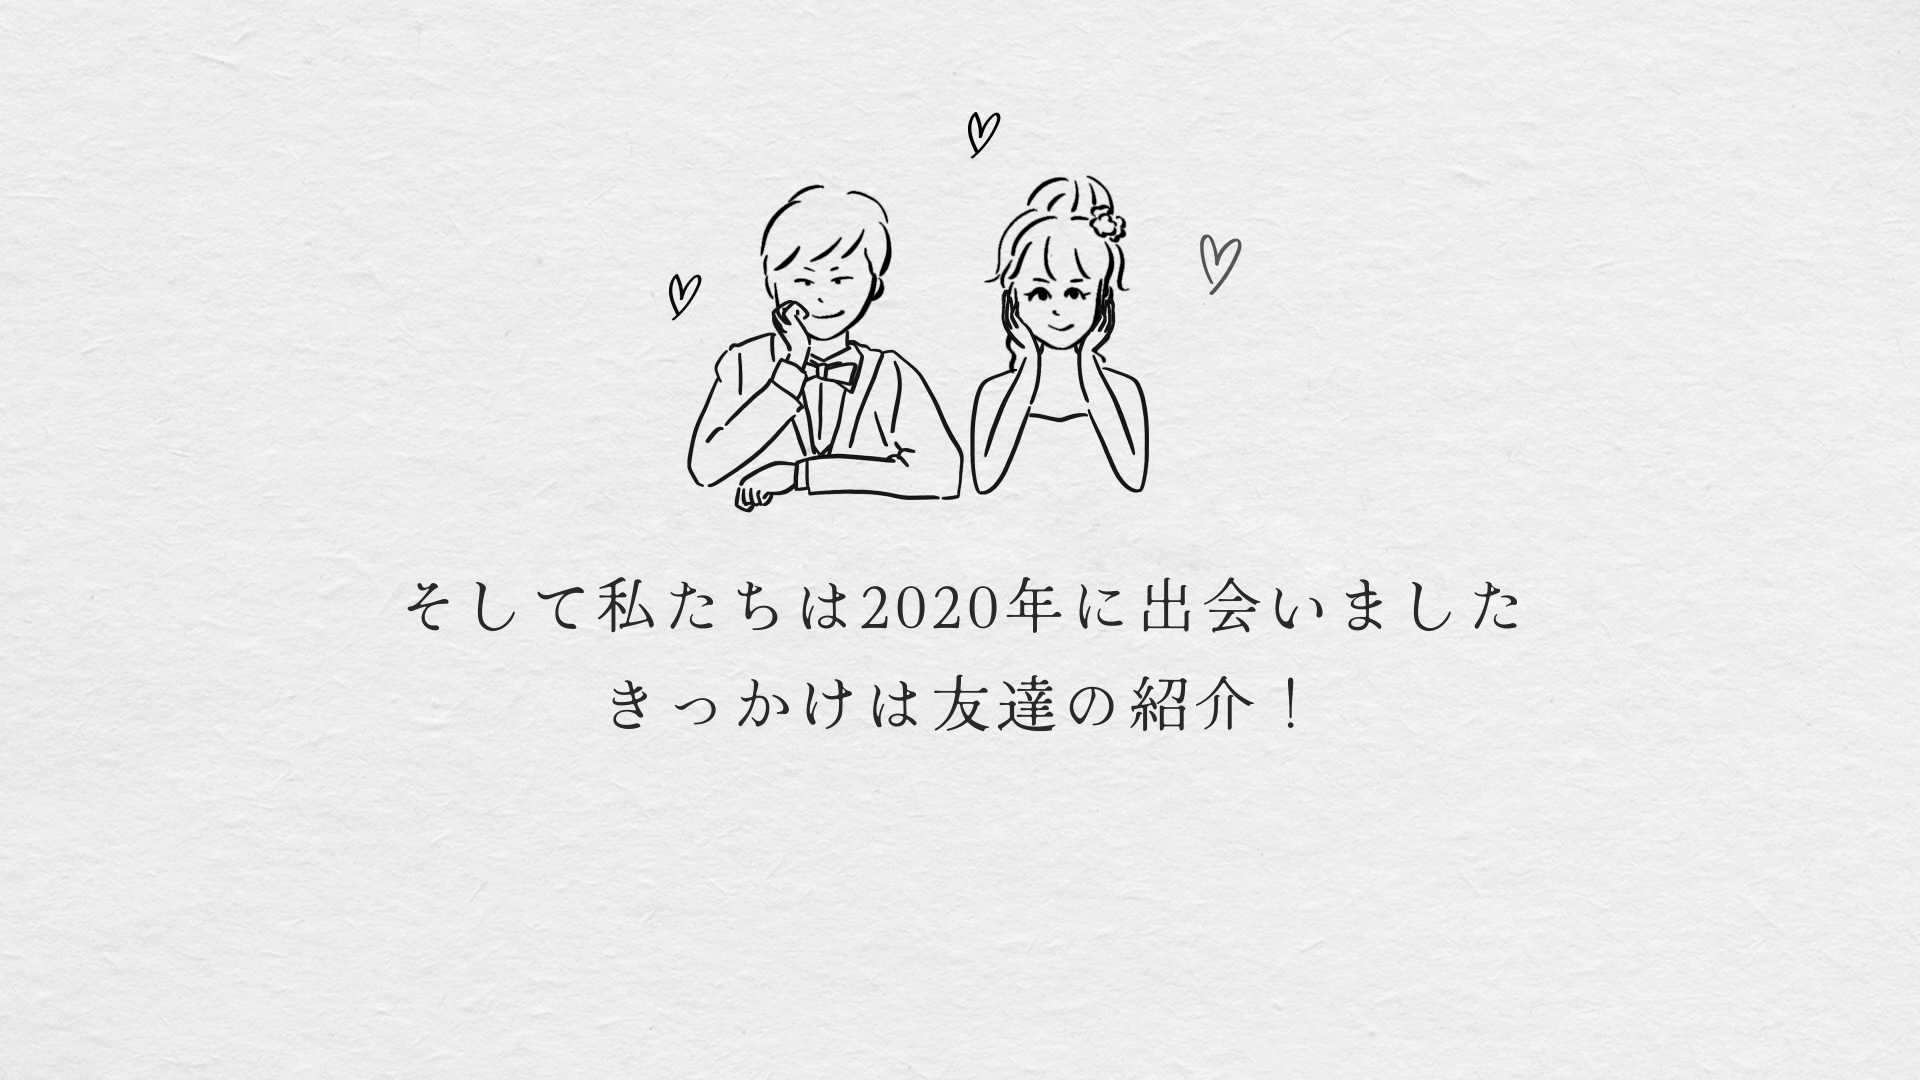 そして私たちは2020年に出会いました
きっかけは友達の紹介！